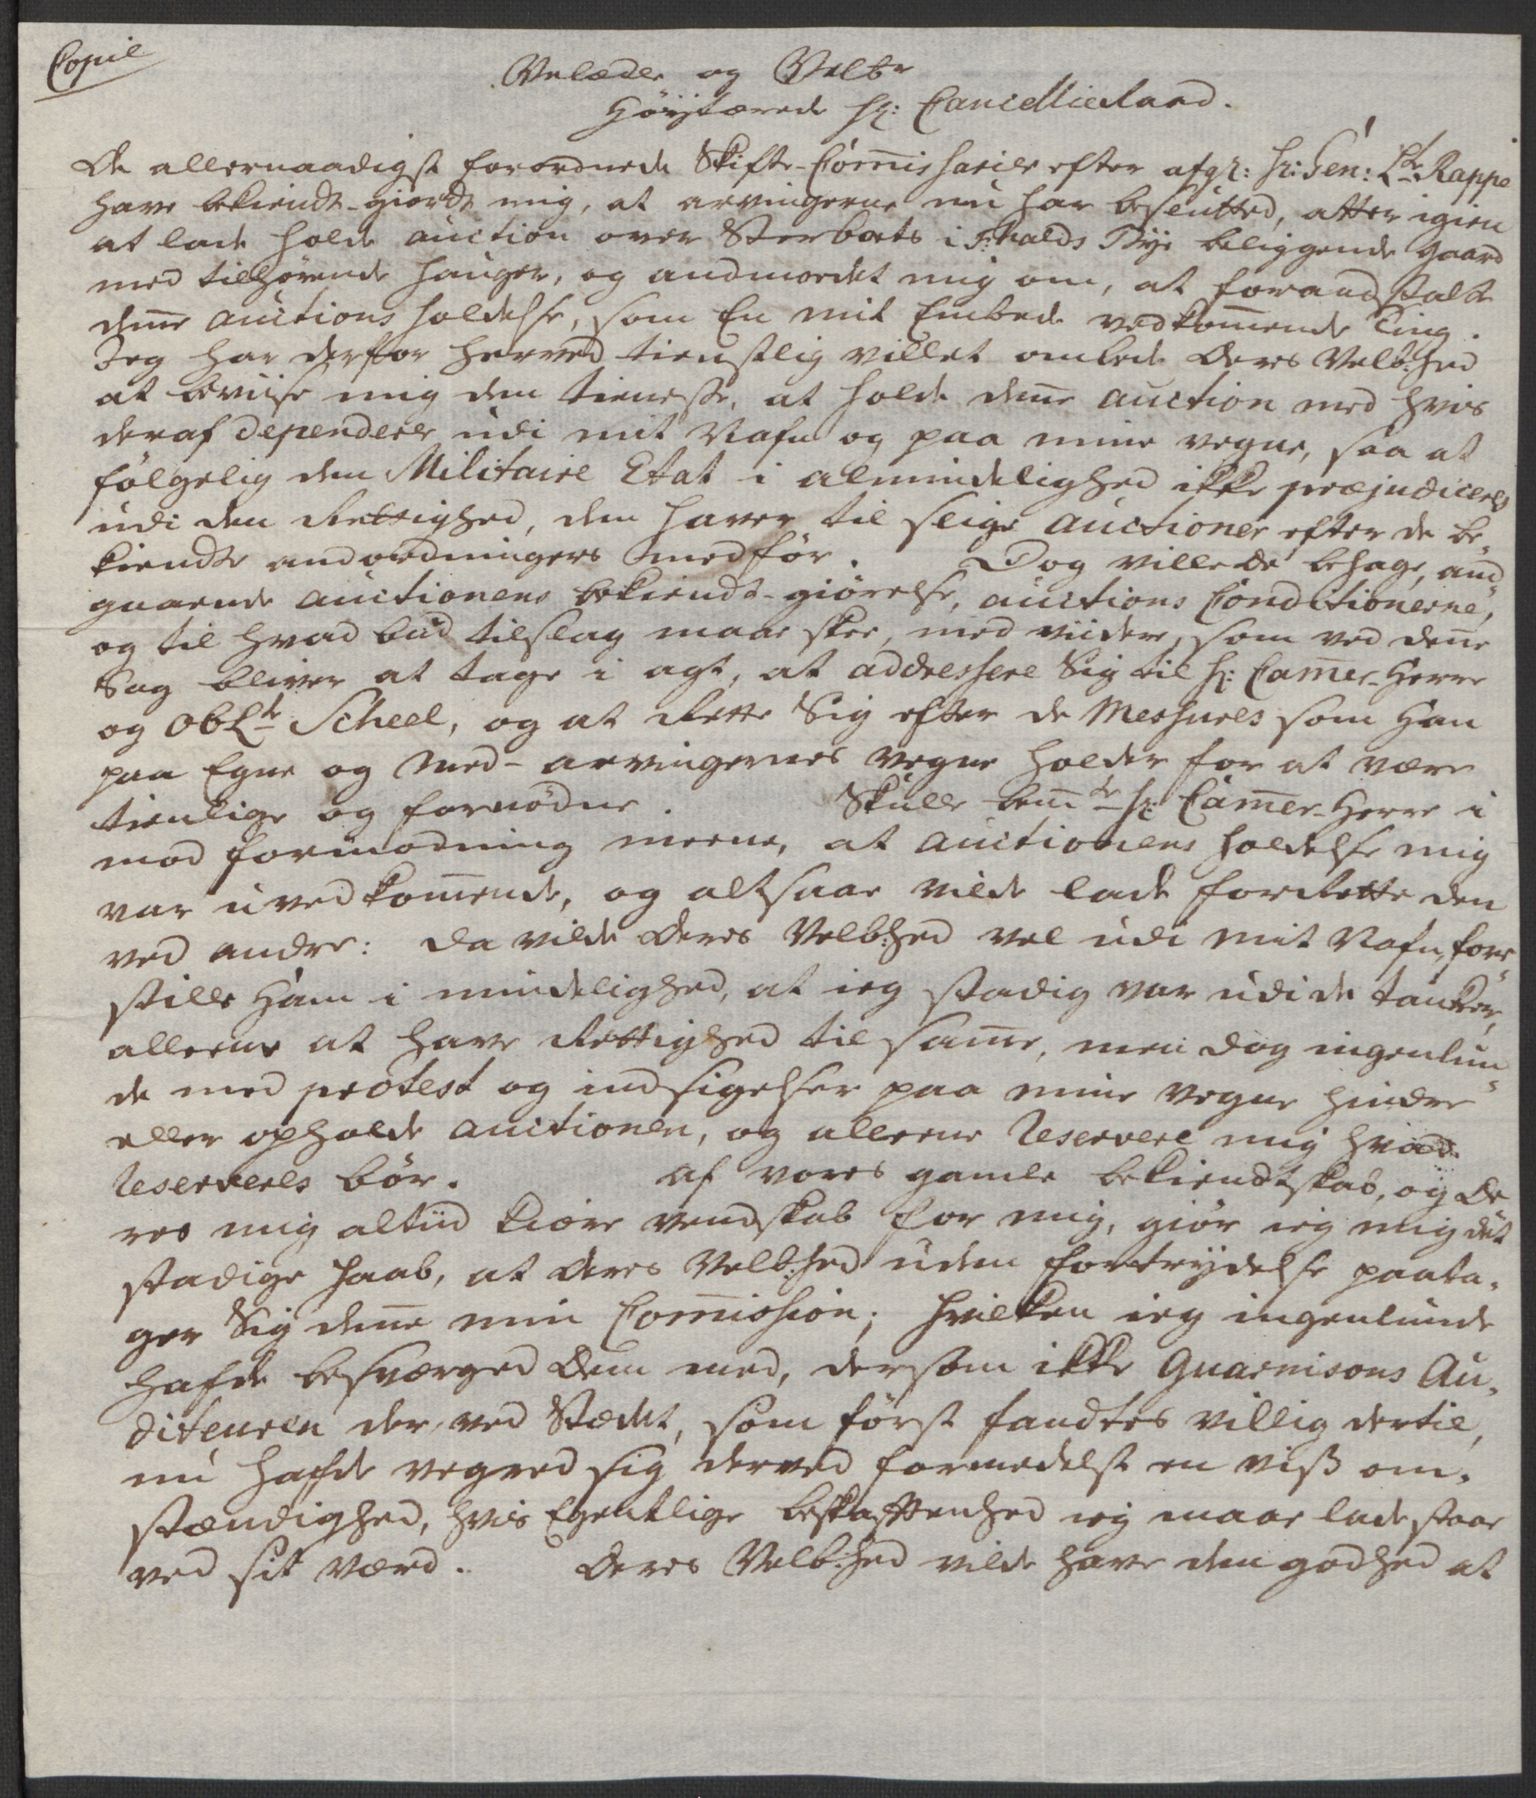 Copie
Velædle og Velbr
Höystærede Hr: Cancellieraad.
De allernaadigst forordnede Skifte-Com̅issarier efter afgl: Hr: Gen: Lt: Rappe
have bekiendt-giordt mig, at arvingerne nu har beslutted, atter igien
at lade holde auction over Sterboets i F:halds Bye beliggende Gaard
med tilhørende Hauger, og andmodet mig om, at foranstalte
den̅e auctions holdelse, som En mit Embede vedkom̅ende Ting.
Jeg har derfor herved tienstlig villet ombede Deres Velb:hed
at beviise mig den tieneste, at holde den̅e auction med hvis
deraf dependerer udi mit Nafn og paa mine vegne, saa at
følgelig den Militaire Etat i almindelighed ikke præjudiceres
udi den Rettighed, den haver til slige auctioner efter de be„
kiendte anordningers medfør. Dog ville De behage, an„
gaaende auctionens bekiendt-giørelse, auctions Conditionerne,
og til hvad bud tilslag maae skee, med viidere, som ved den̅e
Sag bliver at tage i agt, at addressere Sig til Hr: Cam̅er-Herre
og ObLt Scheel, og at Rette Sig efter de Messures som Han
paa Egne og Med-arvingernes vegne holder for at være
tienlige og fornødne. Skulle bem̅te Hr: Cam̅er-Herre i
mod formodning meene, at auctionens holdelse mig
var uvedkom̅ende, og altsaa vilde lade forRette den
ved andre: da vilde Deres Velb:hed vel udi mit Nafn fore„
stille Ham i mindelighed, at ieg stadig var udi de tanker,
alleene at have Rettighed til sam̅e, men dog ingenlun„
de med protest og indsigelser paa mine vegne hindre
eller opholde auctionen, og alleene Reservere mig hvad
Reserveres bør. Af vores gamle bekiendtskab, og De
res mig altiid kiære vendskab for mig, giør ieg mig det
stadige Haab, at Deres Velb:hed uden fortrydelse paata„
ger Sig den̅e min Com̅ission; hvilken ieg ingenlunde
hafde besværged Dem med, dersom ikke Guarnisons Au„
diteuren der ved Stædet, som først fandtes villig dertil,
nu hafde vegred sig derved formedelst en viss om„
stændighed, hvis Egentlige beskaffenhed ieg maae lade staae
ved sit værd. Deres Velb:hed vilde have den godhed at